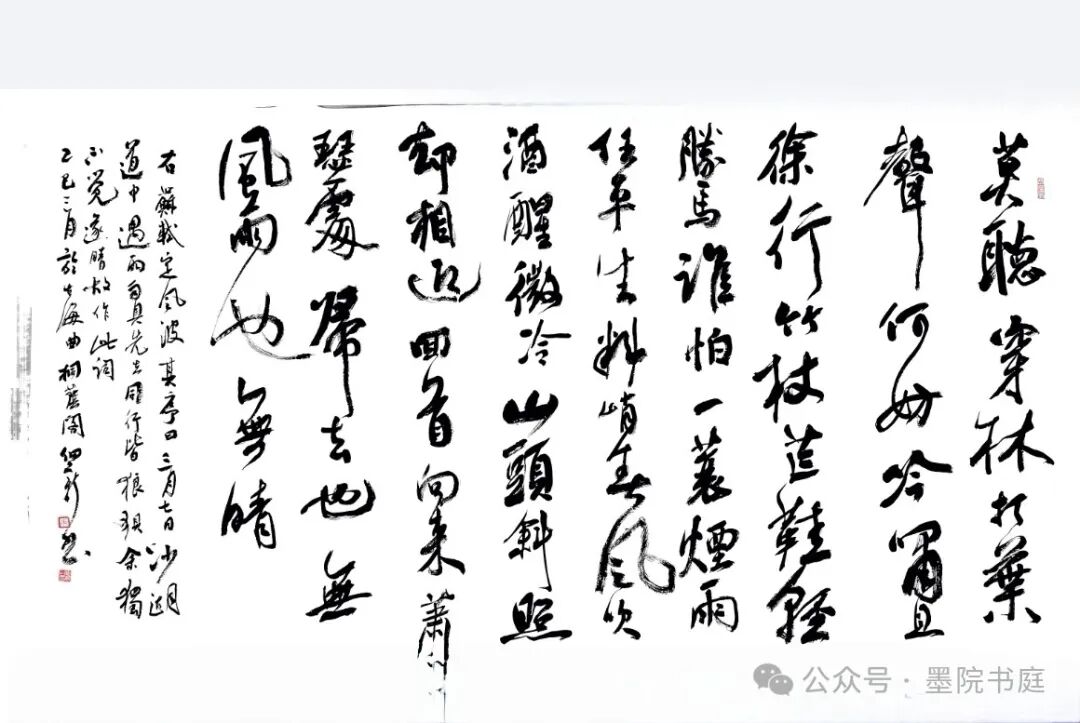 莫聽穿林打葉
聲何妨吟嘯且
徐行竹杖芒鞋輕
勝馬誰怕一蓑煙雨
任平生料峭春風吹
酒醒微冷山頭斜照
却相迎回首向来蕭
瑟處歸去也無
風雨也無晴
右蘇軾定風波其序曰三月七日沙湖
道中遇雨雨具先去同行皆狼狽余獨
不覺遂晴故作此词
乙巳三月於上海曲桐蕉阁
公众号·墨院书庭